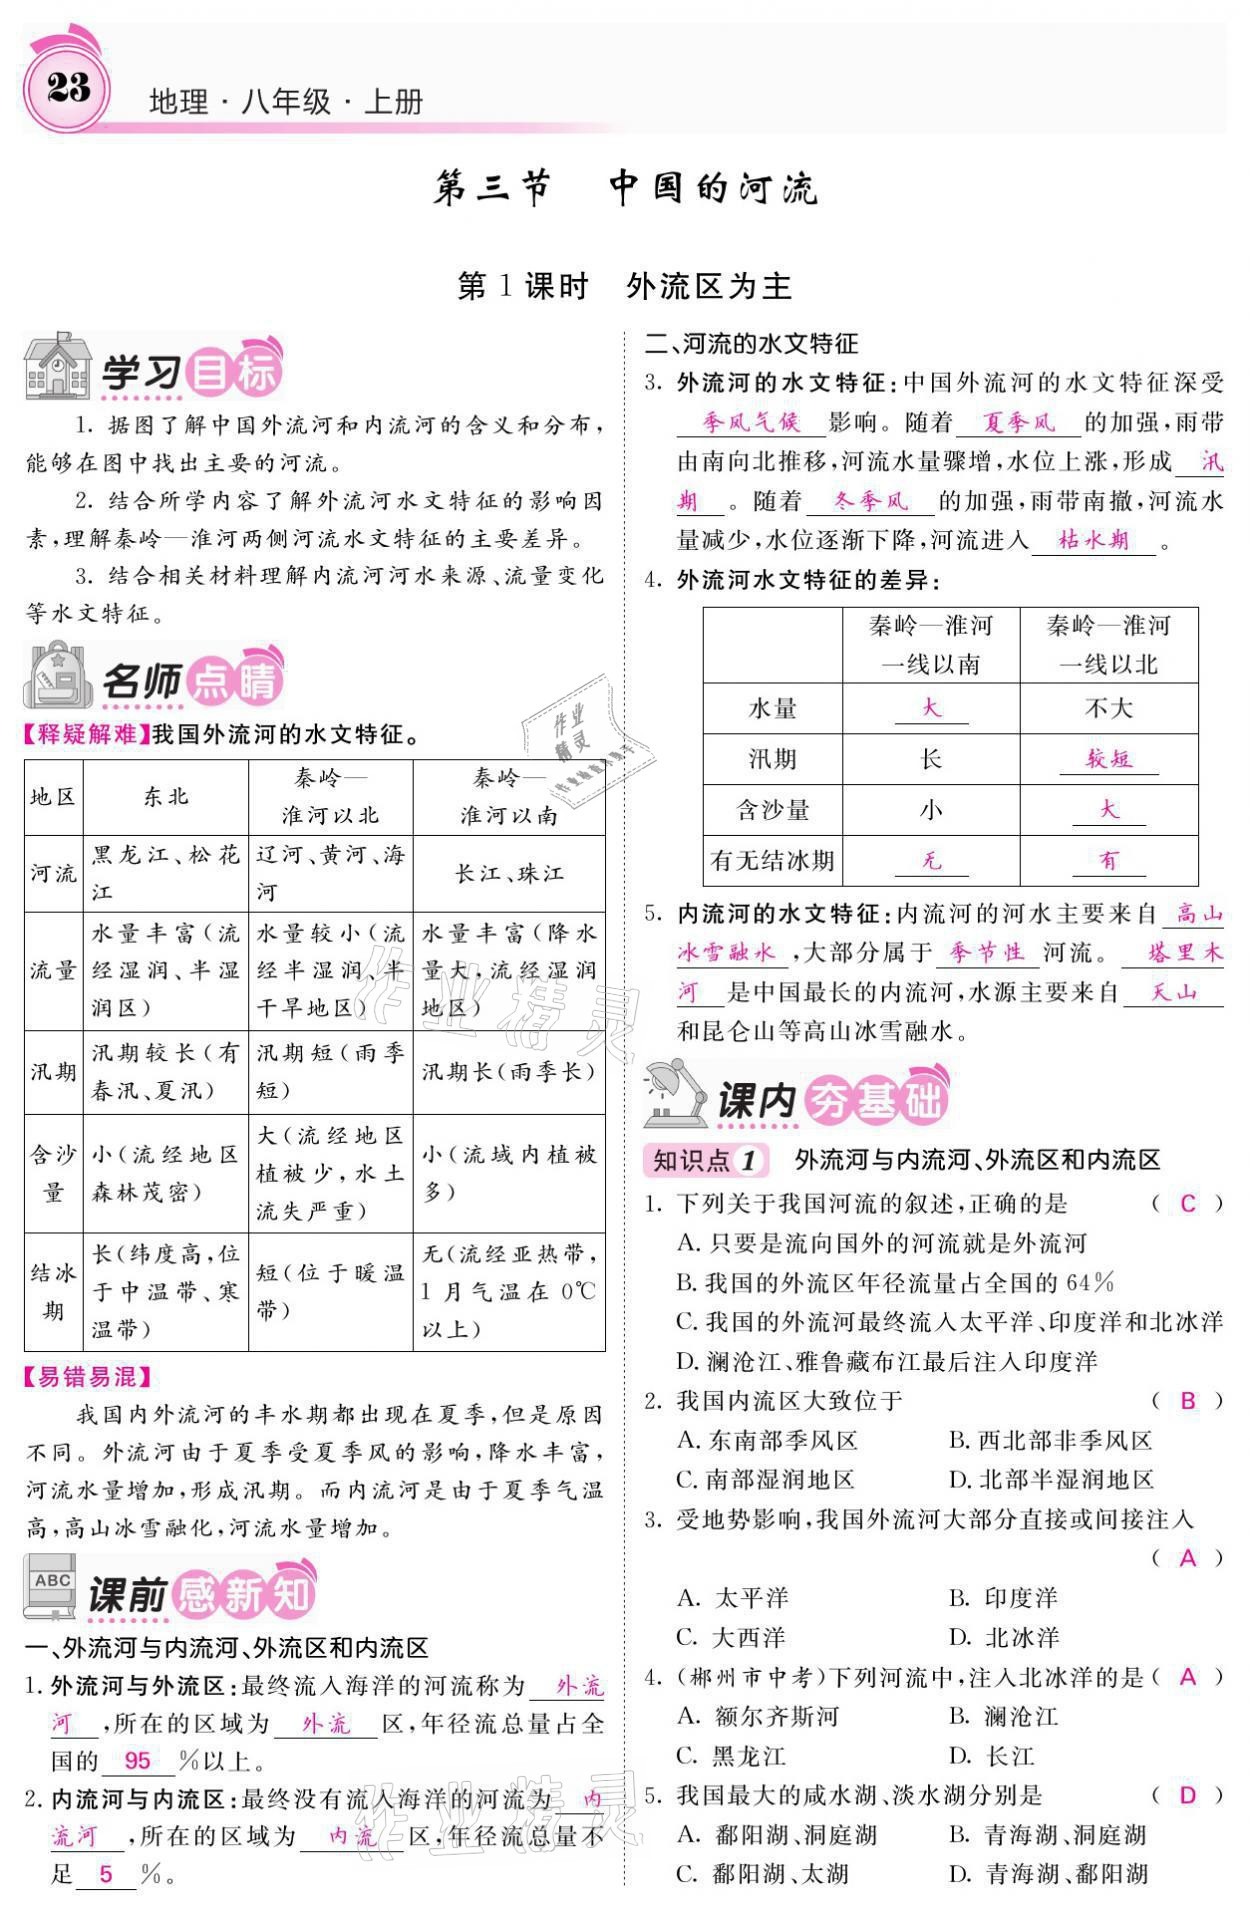 23
地理·八年级·上册
第三节 中国的河流
第1课时 外流区为主
学习目标
1. 据图了解中国外流河和内流河的含义和分布,
能够在图中找出主要的河流。
2. 结合所学内容了解外流河水文特征的影响因
素,理解秦岭—淮河两侧河流水文特征的主要差异。
3. 结合相关材料理解内流河河水来源、流量变化
等水文特征。
名师点睛
【释疑解难】我国外流河的水文特征。
地区 东北 秦岭—淮河以北 秦岭—淮河以南
河流 黑龙江、松花江 辽河、黄河、海河 长江、珠江
流量 水量丰富(流经湿润、半湿润区) 水量较小(流经半湿润、半干旱地区) 水量丰富(降水量大,流经湿润地区)
汛期 汛期较长(有春汛、夏汛) 汛期短(雨季短) 汛期长(雨季长)
含沙量 小(流经地区森林茂密) 大(流经地区植被少,水土流失严重) 小(流域内植被多)
结冰期 长(纬度高,位于中温带、寒温带) 短(位于暖温带) 无(流经亚热带,1月气温在0℃以上)
【易错易混】
我国内外流河的丰水期都出现在夏季,但是原因
不同。外流河由于夏季受夏季风的影响,降水丰富,
河流水量增加,形成汛期。而内流河是由于夏季气温
高,高山冰雪融化,河流水量增加。
ABC
课前感新知
一、外流河与内流河、外流区和内流区
1. 外流河与外流区:最终流入海洋的河流称为 外流
河 ,所在的区域为 外流 区,年径流总量占全
国的 95 %以上。
2. 内流河与内流区:最终没有流入海洋的河流为 内
流河 ,所在的区域为 内流 区,年径流总量不
足 5 %。
二、河流的水文特征
3. 外流河的水文特征:中国外流河的水文特征深受
季风气候 影响。随着 夏季风 的加强,雨带
由南向北推移,河流水量骤增,水位上涨,形成 汛
期 。随着 冬季风 的加强,雨带南撤,河流水
量减少,水位逐渐下降,河流进入 枯水期 。
4. 外流河水文特征的差异:
秦岭—淮河一线以南 秦岭—淮河一线以北
水量 大 不大
汛期 长 较短
含沙量 小 大
有无结冰期 无 有
5. 内流河的水文特征:内流河的河水主要来自 高山
冰雪融水 ,大部分属于 季节性 河流。 塔里木
河 是中国最长的内流河,水源主要来自 天山
和昆仑山等高山冰雪融水。
课内夯基础
知识点1 外流河与内流河、外流区和内流区
1. 下列关于我国河流的叙述,正确的是 ( C )
A. 只要是流向国外的河流就是外流河
B. 我国的外流区年径流量占全国的64%
C. 我国的外流河最终流入太平洋、印度洋和北冰洋
D. 澜沧江、雅鲁藏布江最后注入印度洋
2. 我国内流区大致位于 ( B )
A. 东南部季风区 B. 西北部非季风区
C. 南部湿润地区 D. 北部半湿润地区
3. 受地势影响,我国外流河大部分直接或间接注入
( A )
A. 太平洋 B. 印度洋
C. 大西洋 D. 北冰洋
4. (郴州市中考)下列河流中,注入北冰洋的是( A )
A. 额尔齐斯河 B. 澜沧江
C. 黑龙江 D. 长江
5. 我国最大的咸水湖、淡水湖分别是 ( D )
A. 鄱阳湖、洞庭湖 B. 青海湖、洞庭湖
C. 鄱阳湖、太湖 D. 青海湖、鄱阳湖
作业精灵
作业精灵
作业
精灵